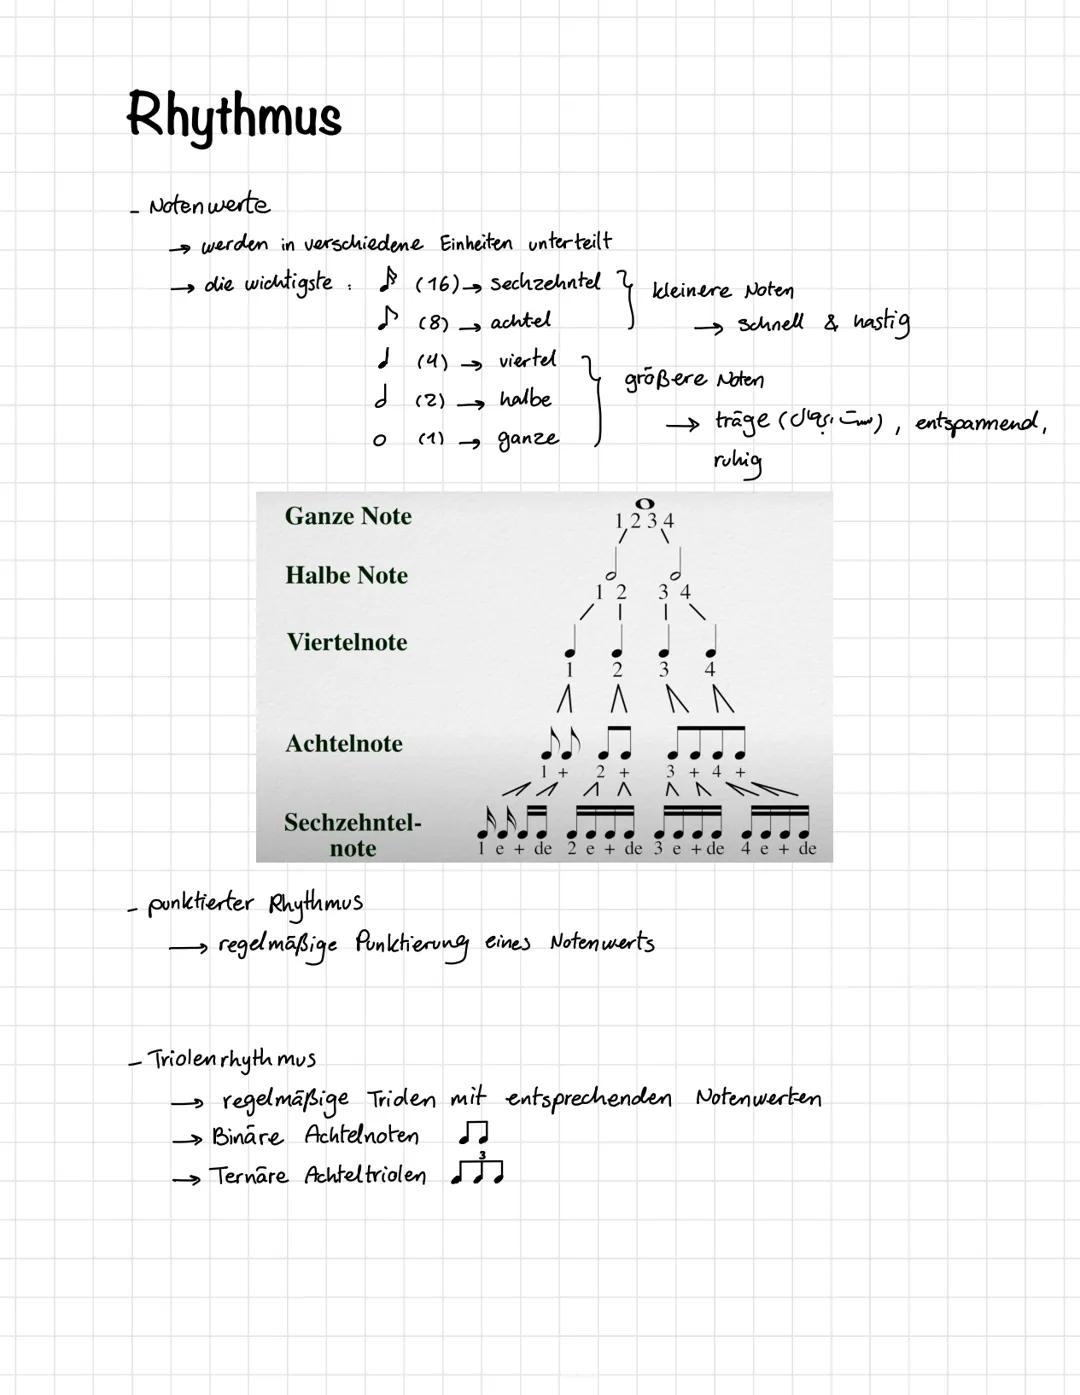 Rhythmus
- Notenwerte
→ werden in verschiedene Einheiten unterteilt
→ die wichtigste : (16) → sechzehntel
(8) → achtel
kleinere Noten
→ schnell & hastig
(4) → viertel
(2) → halbe
(1) → ganze
größere Noten
→ träge (سست، بی‌حال), entspannend,
ruhig
Ganze Note
1 2 3 4
Halbe Note
1 2 3 4
Viertelnote
1 2 3 4
Achtelnote
1 + 2 + 3 + 4 +
Sechzehntel-
note
1 e + de 2 e + de 3 e + de 4 e + de
- punktierter Rhythmus
→ regelmäßige Punktierung eines Notenwerts
- Triolenrhythmus
→ regelmäßige Triolen mit entsprechenden Notenwerten
→ Binäre Achtelnoten
→ Ternäre Achteltriolen 3